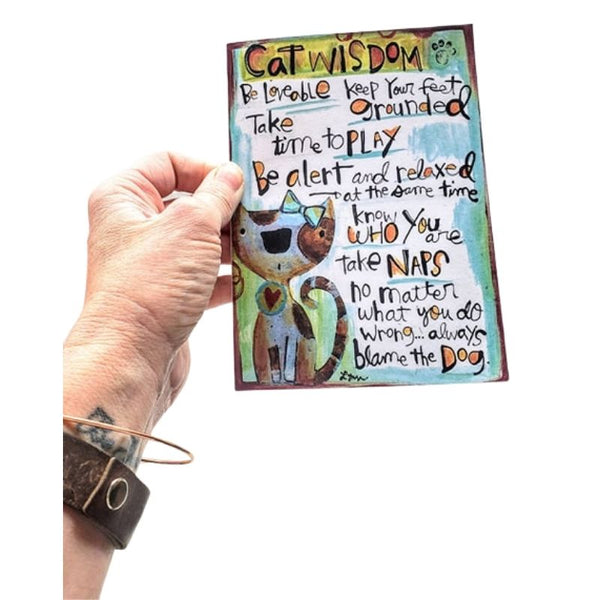 Cat WISDOM
Be Loveable Keep Your feet
grounded
Take
time to PLAY
Be alert and relaxed
at the same time
know
WHO You are
take NAPS
no matter
what you do
wrong... always
blame the Dog.
Lynn